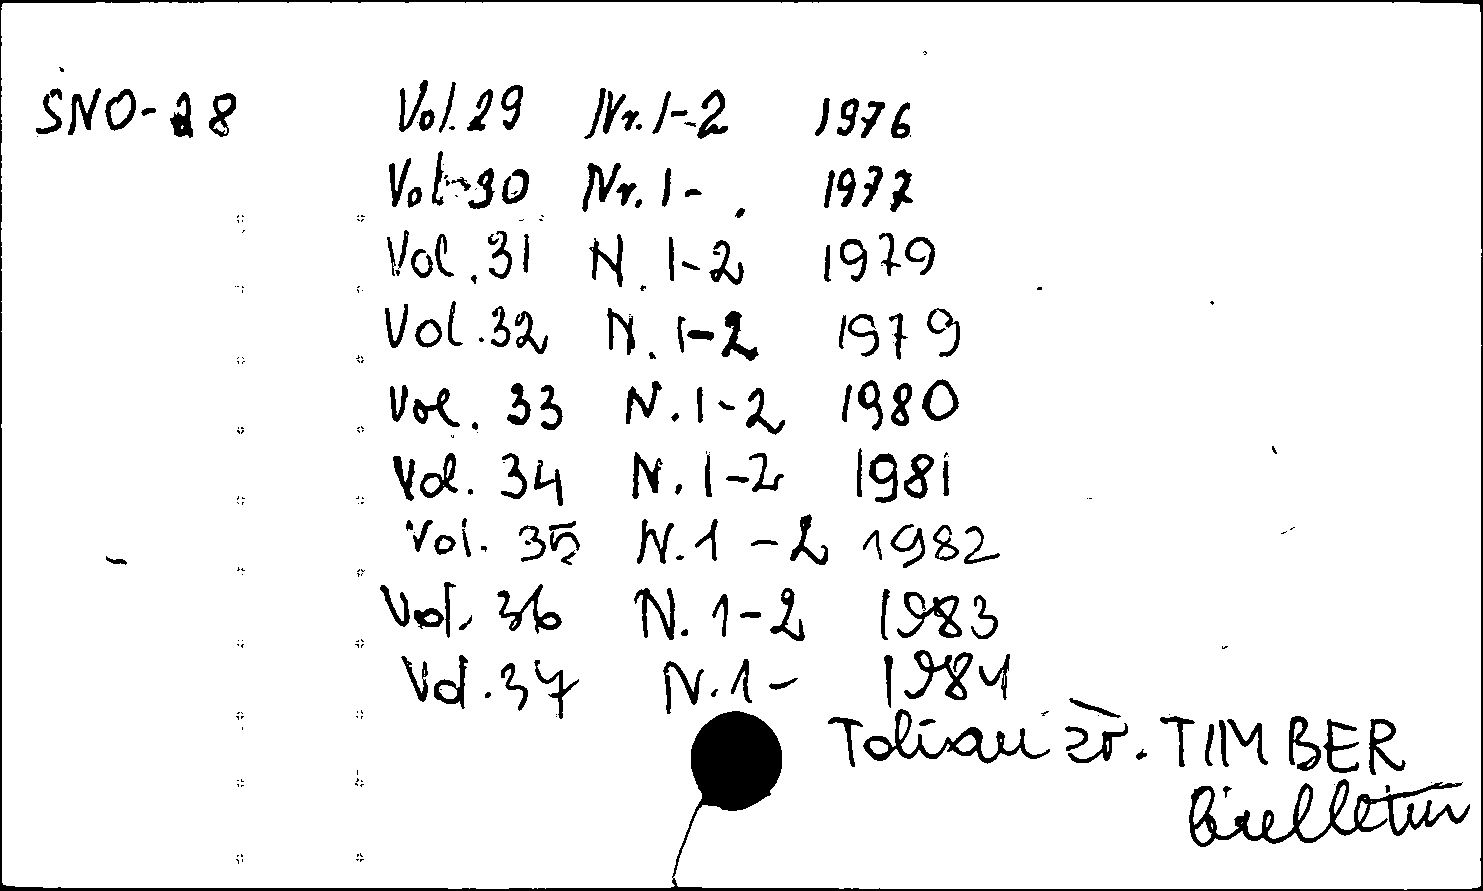 SNO-28 Vol. 29 Nr. 1-2 1976
Vol. 30 Nr. 1- 1977
Vol. 31 N. 1-2 1979
Vol. 32 N. 1-2 1979
Vol. 33 N. 1-2 1980
Vol. 34 N. 1-2 1981
Vol. 35 N. 1-2 1982
Vol. 36 N. 1-2 1983
Vol. 37 N. 1- 1984
Toliau žr. TIMBER
bulletin